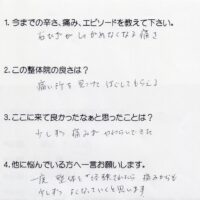 1. 今までの辛さ、痛み、エピソードを教えて下さい。
右ひざが しゃがめなくなる 痛さ
2. この整体院の良さは?
痛い所を 見つけ ほぐしてもらえる
3. ここに来て良かったなぁと思ったことは?
少しずつ 痛みが やわらいできた
4. 他に悩んでいる方へ一言お願いします。
一度 整体を 体験されたら 痛みが
少しずつ よくなっていくと思います